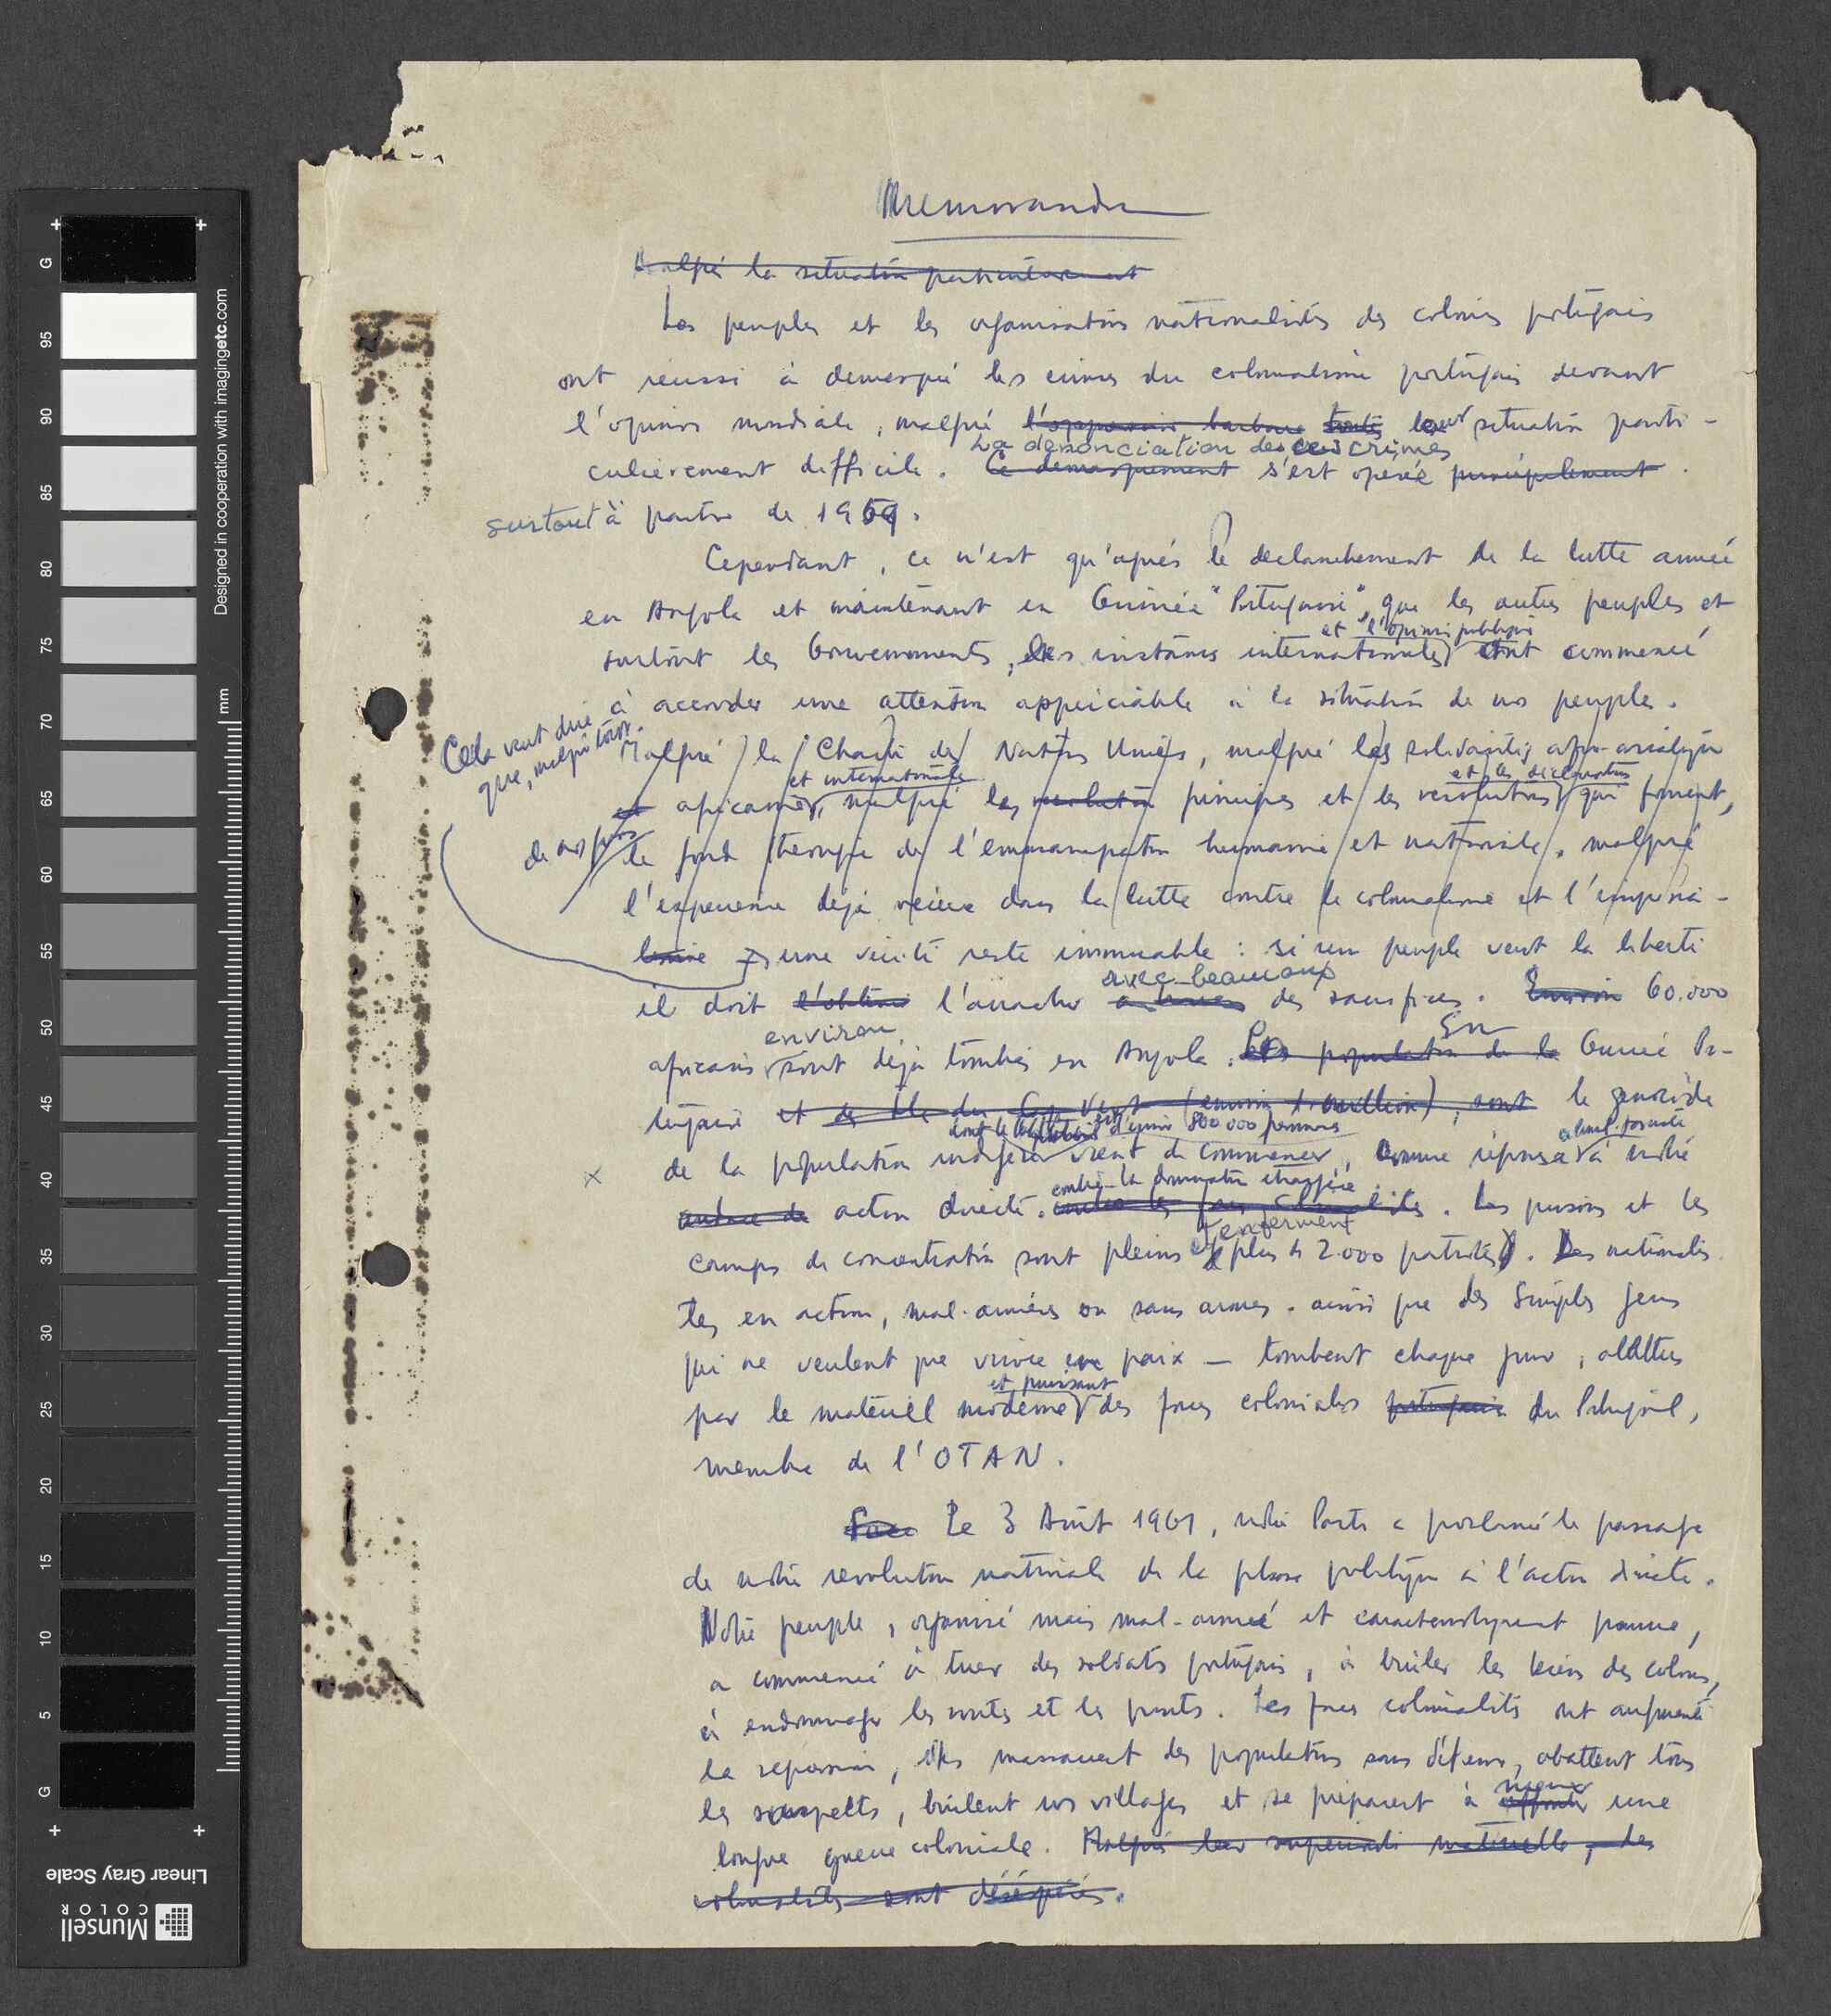 Memorandum
Malgré la situation particulièrement
Les peuples et les organisations nationalistes des colonies portugaises
ont réussi à démasquer les crimes du colonialisme portugais devant
l'opinion mondiale, malgré l'oppression barbare toute leur situation parti-
La dénonciation de ces crimes
culièrement difficile. Ce démasquement s'est operée principalement
surtout à partir de 1959.
Cependant, ce n'est qu'après le déclanchement de la lutte armée
en Angola et maintenant en Guinée "Portugaise", que les autres peuples et
et l'opinion publique
surtout les Gouvernements, les instances internationales ont commencé
à accorder une attention appréciable à la situation de nos peuples.
Cela veut dire
que, malgré tout.
Malgré la Charte des Nations Unies, malgré les solidarités afro-asiatique
et internationale
et les déclarations
et africaines, malgré les resolution principes et les resolutions qui forment,
de nos jours
le fond de l'emmancipation humaine et nationale, malgré
l'expérience déjà vécue dans la lutte contre le colonialisme et l'impéria-
lisme une vérité reste immuable : si un peuple veut la liberté
avec beaucoup
il doit l'obtenir l'arracher des sacrifices. Environ 60.000
environ
En
africains sont déjà tombés en Angola. Les population de la Guinée Por-
tugaise et des Iles du Cap Vert (environ 1 million), sont le génocide
dont le est d'environ 800 000 personnes
de la population indigène vient de commencer, comme réponse à notre
contre la domination étrangère
action directe. contre les forces colonialistes. Les prisons et les
renferment
camps de concentration sont pleins plus de 2.000 patriotes. Des nationalis
tes en action, mal-armées ou sans armes - ainsi que des simples gens
qui ne veulent que vivre en paix — tombent chaque jour, abattus
et puissant
par le matériel moderne des forces coloniales portugaises du Portugal,
membre de l'OTAN.
Face Le 3 Août 1961, notre Parti a proclamé le passage
de notre revolution nationale de la phase politique à l'action directe.
Notre peuple, organisé mais mal-armé et caracteristiquement pauvre,
a commencé à tuer des soldats portugais, à brûler les biens des colons,
à endommager les routes et les ponts. Les forces colonialistes ont augmenté
la repression, elles massacrent des populations sans défense, abattent tous
les suspects, brûlent nos villages et se préparent à
mener
une
longue guerre coloniale. Malgré leur superiorité matérielle, des
colonialistes sont désespérés.
Designed in cooperation with imagingetc.com
mm
G
95
90
85
80
75
70
65
60
55
50
45
40
35
30
25
20
15
10
5
G
Linear Gray Scale
Munsell
COLOR